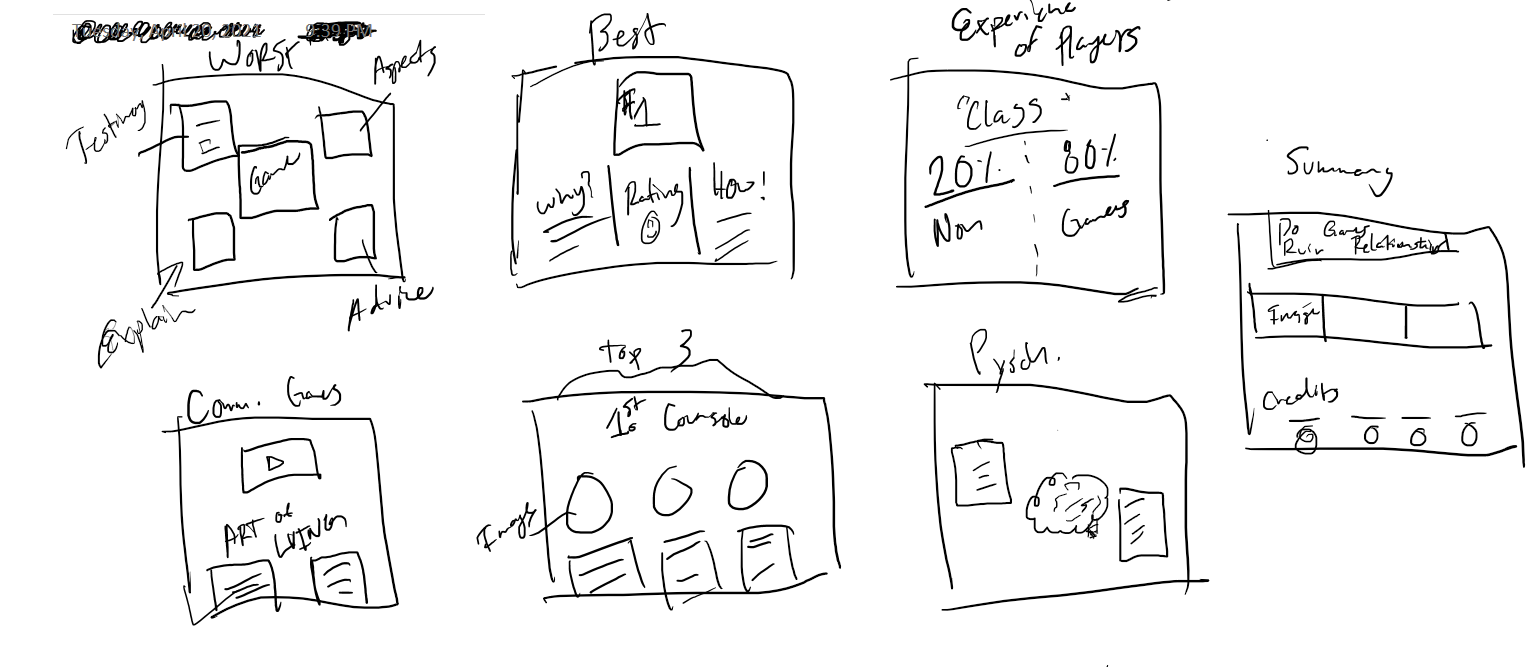 8:39 PM
Worst
Aspects
Testimony
Game
Explain
Advice
Best
#1
Why?
Rating
How!
Experience
of Players
"Class"
20%
80%
Non
Gamers
Summary
Do Games
Ruin Relationship
Image
Credits
Comm. Games
ART of
LYING
Top 3
1st Console
Image
Pysch.